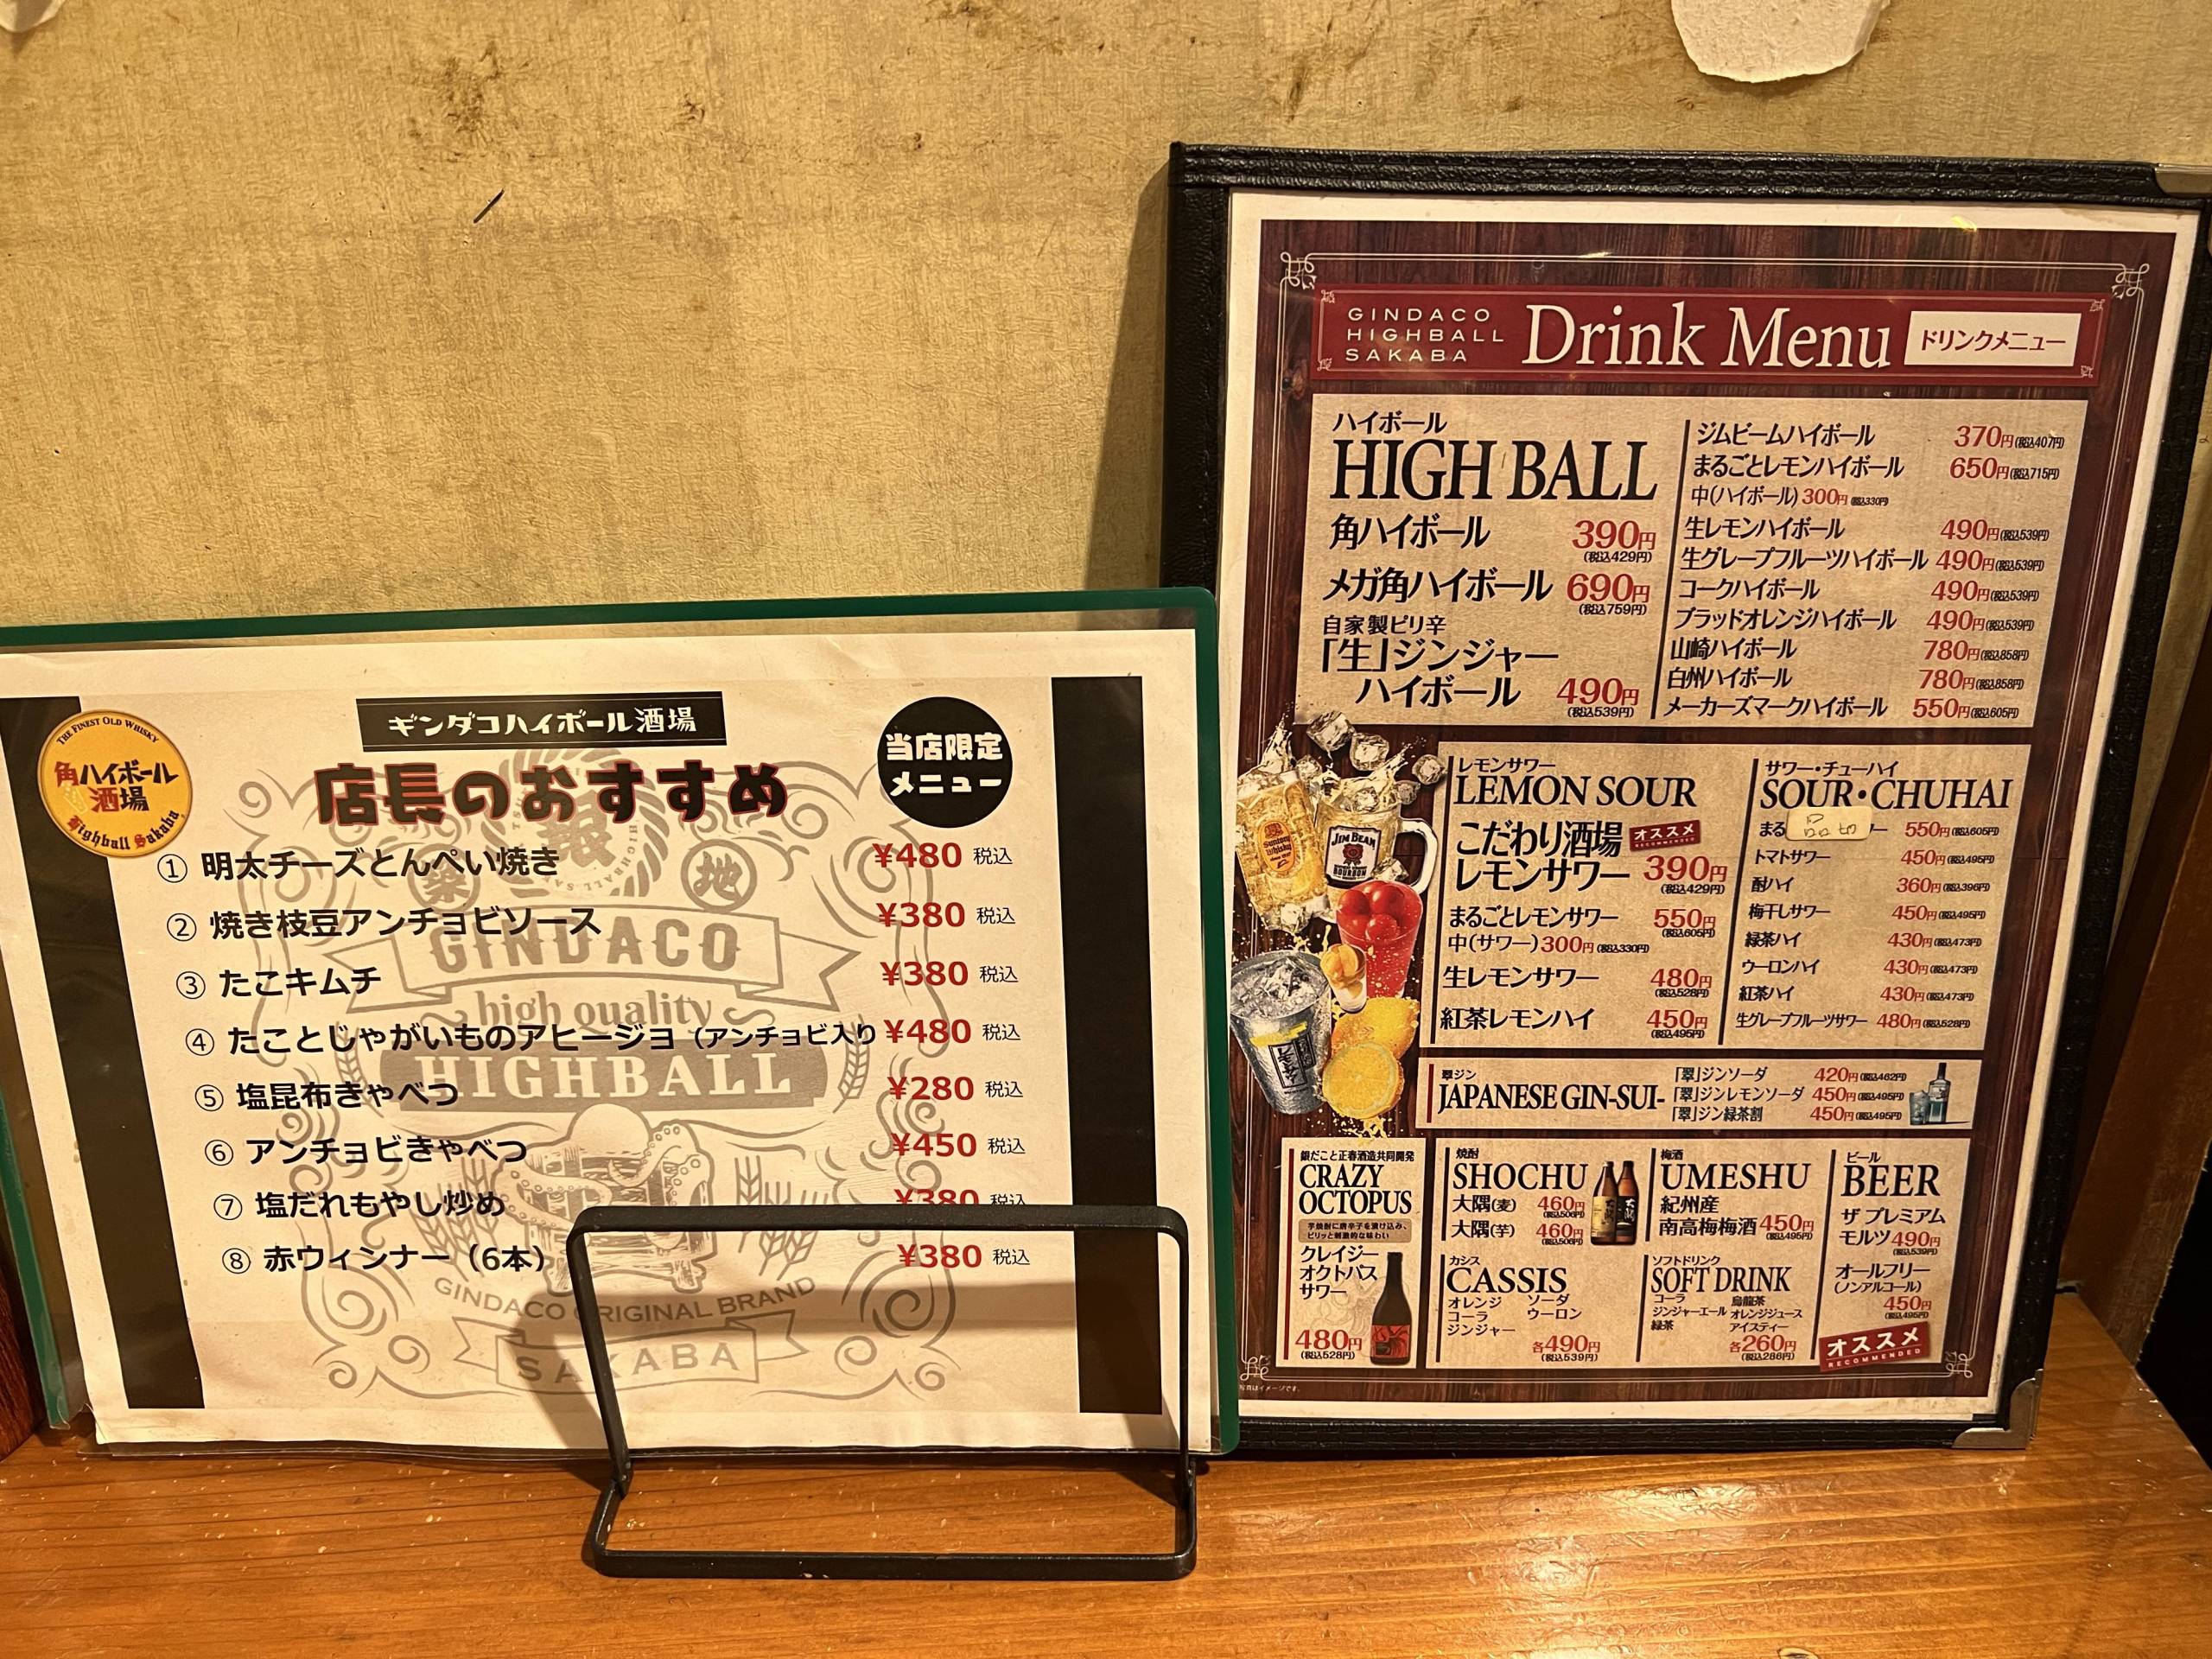 ギンダコハイボール酒場
店長のおすすめ
当店限定
メニュー
THE FINEST OLD WHISKY
角ハイボール
酒場
Highball Sakaba
① 明太チーズとんぺい焼き ¥480 税込
② 焼き枝豆アンチョビソース ¥380 税込
③ たこキムチ ¥380 税込
④ たことじゃがいものアヒージョ（アンチョビ入り ¥480 税込
⑤ 塩昆布きゃべつ ¥280 税込
⑥ アンチョビきゃべつ ¥450 税込
⑦ 塩だれもやし炒め ¥380 税込
⑧ 赤ウィンナー（6本） ¥380 税込
銀
築
地
GINDACO
high quality
HIGHBALL
GINDACO ORIGINAL BRAND
SAKABA
GINDACO
HIGHBALL
SAKABA
Drink Menu
ドリンクメニュー
ハイボール
HIGH BALL
角ハイボール 390円
(税込429円)
メガ角ハイボール 690円
(税込759円)
自家製ピリ辛
「生」ジンジャー
ハイボール 490円
(税込539円)
ジムビームハイボール 370円(税込407円)
まるごとレモンハイボール 650円(税込715円)
中(ハイボール) 300円(税込330円)
生レモンハイボール 490円(税込539円)
生グレープフルーツハイボール 490円(税込539円)
コークハイボール 490円(税込539円)
ブラッドオレンジハイボール 490円(税込539円)
山崎ハイボール 780円(税込858円)
白州ハイボール 780円(税込858円)
メーカーズマークハイボール 550円(税込605円)
JIM BEAM
BOURBON
レモンサワー
LEMON SOUR
こだわり酒場
オススメ
RECOMMENDED
レモンサワー 390円
(税込429円)
まるごとレモンサワー 550円
(税込605円)
中(サワー) 300円(税込330円)
生レモンサワー 480円
(税込528円)
紅茶レモンハイ 450円
(税込495円)
サワー・チューハイ
SOUR・CHUHAI
まる 品切 ー 550円(税込605円)
トマトサワー 450円(税込495円)
酎ハイ 360円(税込396円)
梅干しサワー 450円(税込495円)
緑茶ハイ 430円(税込473円)
ウーロンハイ 430円(税込473円)
紅茶ハイ 430円(税込473円)
生グレープフルーツサワー 480円(税込528円)
翠ジン
JAPANESE GIN-SUI-
「翠」ジンソーダ 420円(税込462円)
「翠」ジンレモンソーダ 450円(税込495円)
「翠」ジン緑茶割 450円(税込495円)
銀だこと正春酒造共同開発
CRAZY
OCTOPUS
芋焼酎に唐辛子を漬け込み、
ピリッと刺激的な味わい
クレイジー
オクトパス
サワー
480円
(税込528円)
焼酎
SHOCHU
大隅(麦) 460円
(税込506円)
大隅(芋) 460円
(税込506円)
梅酒
UMESHU
紀州産
南高梅梅酒 450円
(税込495円)
ビール
BEER
ザ プレミアム
モルツ 490円
(税込539円)
オールフリー
(ノンアルコール)
450円
(税込495円)
オススメ
RECOMMENDED
カシス
CASSIS
オレンジ ソーダ
コーラ ウーロン
ジンジャー
各490円
(税込539円)
ソフトドリンク
SOFT DRINK
コーラ 烏龍茶
ジンジャーエール オレンジジュース
緑茶 アイスティー
各260円
(税込286円)
写真はイメージです。